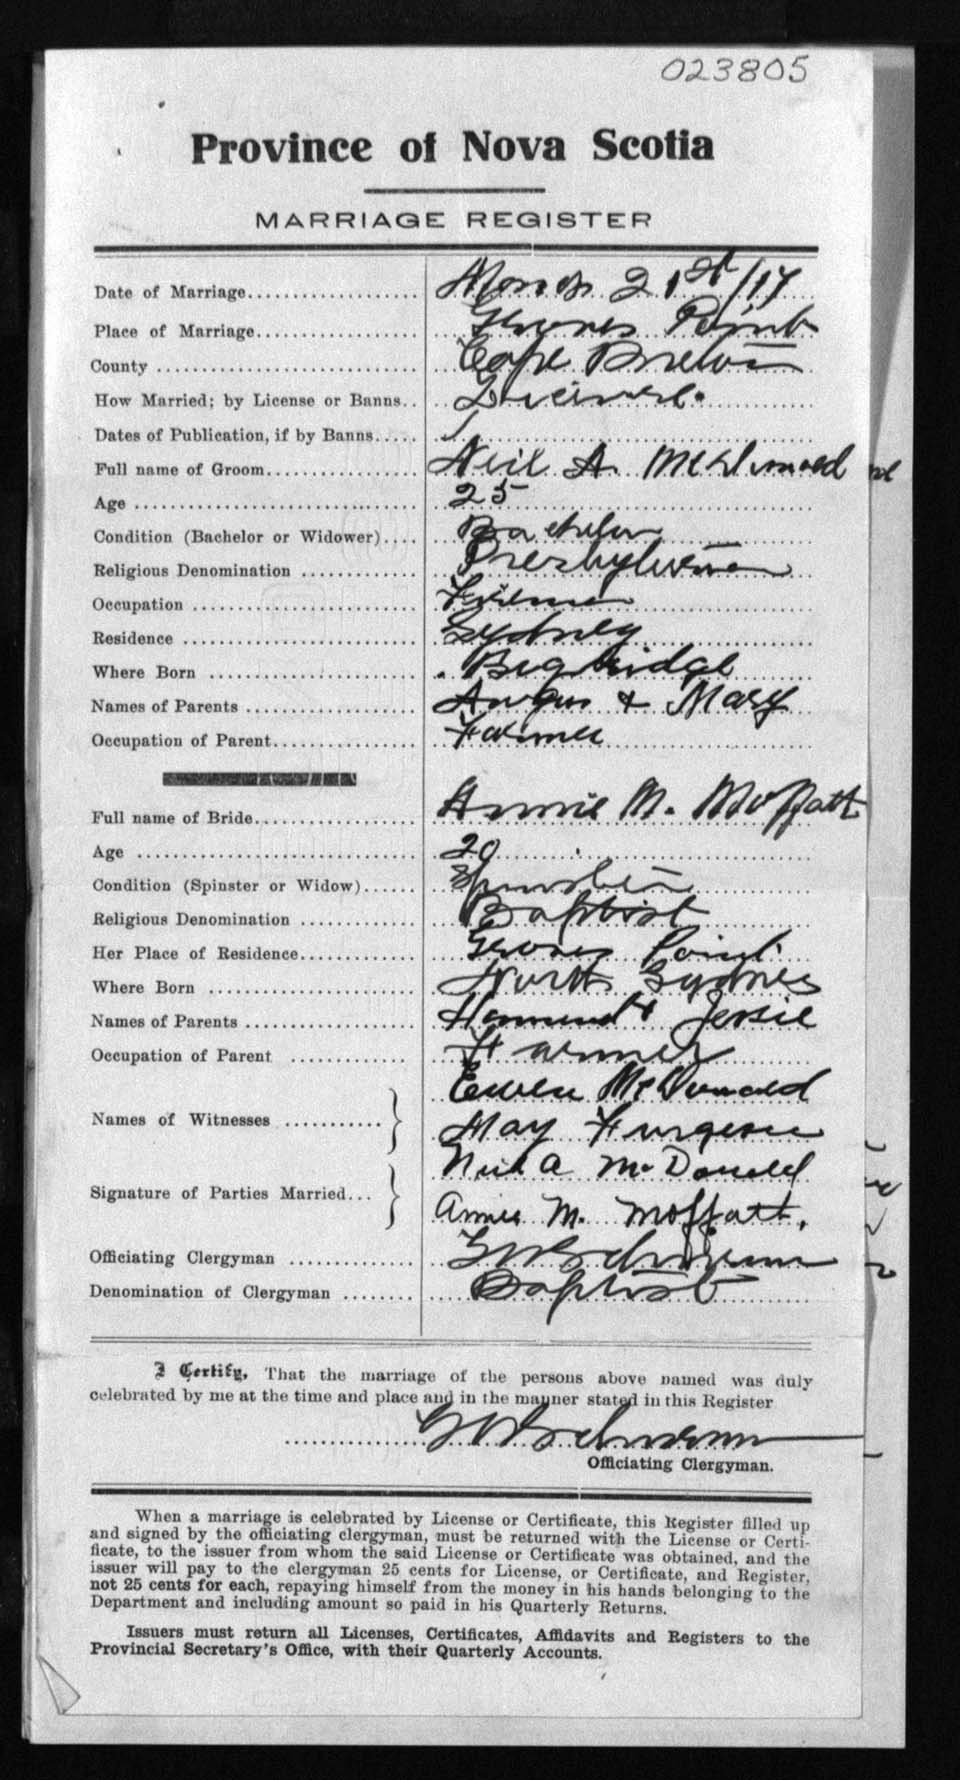 023805
Province of Nova Scotia
MARRIAGE REGISTER
Date of Marriage.................... March 21st/17
Place of Marriage.................... Georges Point
County .................... Cape Breton
How Married; by License or Banns.. License.
Dates of Publication, if by Banns.....
Full name of Groom.................... Neil A. McDonald
Age .................... 25
Condition (Bachelor or Widower).... Bachelor
Religious Denomination ............. Presbyterian
Occupation .................... Fireman
Residence .................... Sydney
Where Born .................... Big Ridge
Names of Parents .................... Angus & Mary
Occupation of Parent.................... Farmer
Full name of Bride.................... Annie M. Moffatt
Age .................... 20
Condition (Spinster or Widow)...... Spinster
Religious Denomination ............. Baptist
Her Place of Residence............. Georges Point
Where Born .................... North Sydney
Names of Parents .................... & Jessie
Occupation of Parent ............. Farmer
Ewen McDonald
Names of Witnesses ...........
May
Neil A McDonald
Signature of Parties Married...
Annie M. Moffatt.
Officiating Clergyman .............
Denomination of Clergyman ........ Baptist
I Certify, That the marriage of the persons above named was duly
celebrated by me at the time and place and in the manner stated in this Register
Officiating Clergyman.
When a marriage is celebrated by License or Certificate, this Register filled up
and signed by the officiating clergyman, must be returned with the License or Certi-
ficate, to the issuer from whom the said License or Certificate was obtained, and the
issuer will pay to the clergyman 25 cents for License, or Certificate, and Register,
not 25 cents for each, repaying himself from the money in his hands belonging to the
Department and including amount so paid in his Quarterly Returns.
Issuers must return all Licenses, Certificates, Affidavits and Registers to the
Provincial Secretary's Office, with their Quarterly Accounts.